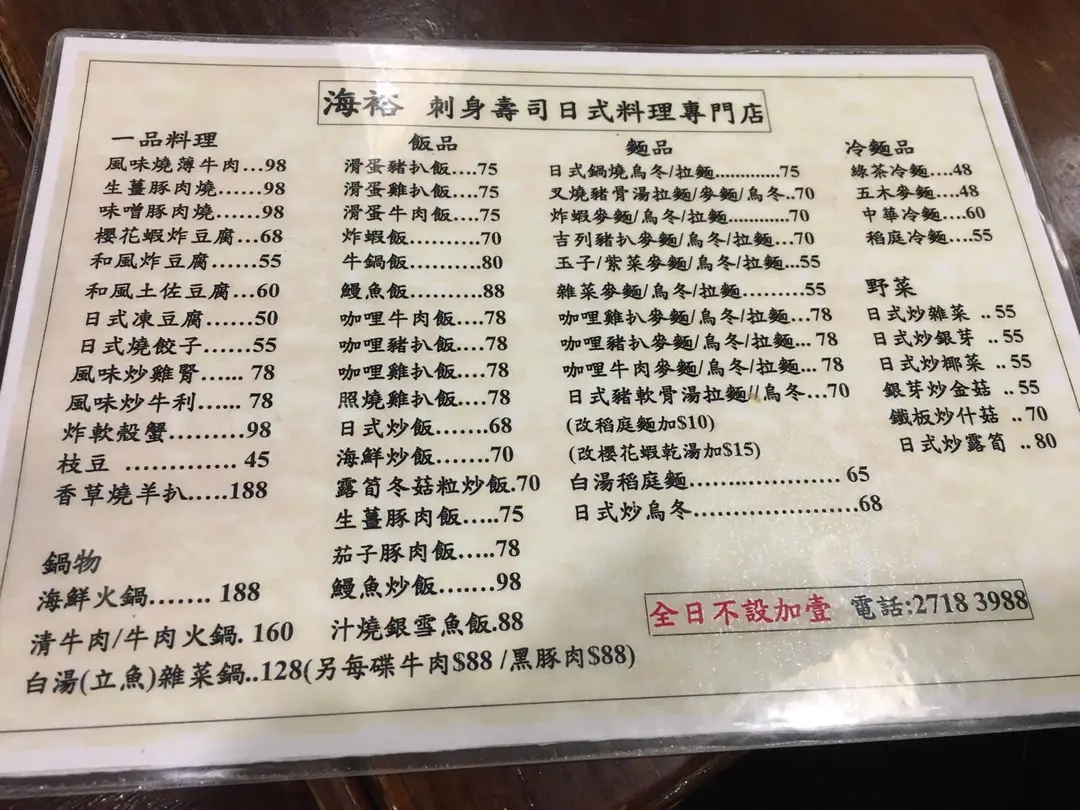 海裕 刺身壽司日式料理專門店
一品料理
風味燒薄牛肉...98
生薑豚肉燒......98
味噌豚肉燒......98
櫻花蝦炸豆腐...68
和風炸豆腐......55
和風土佐豆腐...60
日式凍豆腐......50
日式燒餃子......55
風味炒雞腎...... 78
風味炒牛利...... 78
炸軟殼蟹.........98
枝豆 ............. 45
香草燒羊扒.....188
鍋物
海鮮火鍋....... 188
清牛肉/牛肉火鍋. 160
白湯(立魚)雜菜鍋..128(另每碟牛肉$88 /黑豚肉$88)
飯品
滑蛋豬扒飯....75
滑蛋雞扒飯....75
滑蛋牛肉飯....75
炸蝦飯.........70
牛鍋飯.........80
鰻魚飯.........88
咖哩牛肉飯....78
咖哩豬扒飯....78
咖哩雞扒飯....78
照燒雞扒飯....78
日式炒飯.......68
海鮮炒飯.......70
露筍冬菇粒炒飯.70
生薑豚肉飯.....75
茄子豚肉飯.....78
鰻魚炒飯.......98
汁燒銀雪魚飯.88
麵品
日式鍋燒烏冬/拉麵.............75
叉燒豬骨湯拉麵/麥麵/烏冬..70
炸蝦麥麵/烏冬/拉麵............70
吉列豬扒麥麵/烏冬/拉麵...70
玉子/紫菜麥麵/烏冬/拉麵...55
雜菜麥麵/烏冬/拉麵.........55
咖哩雞扒麥麵/烏冬/拉麵...78
咖哩豬扒麥麵/烏冬/拉麵... 78
咖哩牛肉麥麵/烏冬/拉麵... 78
日式豬軟骨湯拉麵//烏冬...70
(改稻庭麵加$10)
(改櫻花蝦乾湯加$15)
白湯稻庭麵...................... 65
日式炒烏冬.....................68
冷麵品
綠茶冷麵....48
五木麥麵....48
中華冷麵....60
稻庭冷麵....55
野菜
日式炒雜菜 ..55
日式炒銀芽 ..55
日式炒椰菜 ..55
銀芽炒金菇 ..55
鐵板炒什菇 ..70
日式炒露筍 ..80
全日不設加壹 電話:2718 3988